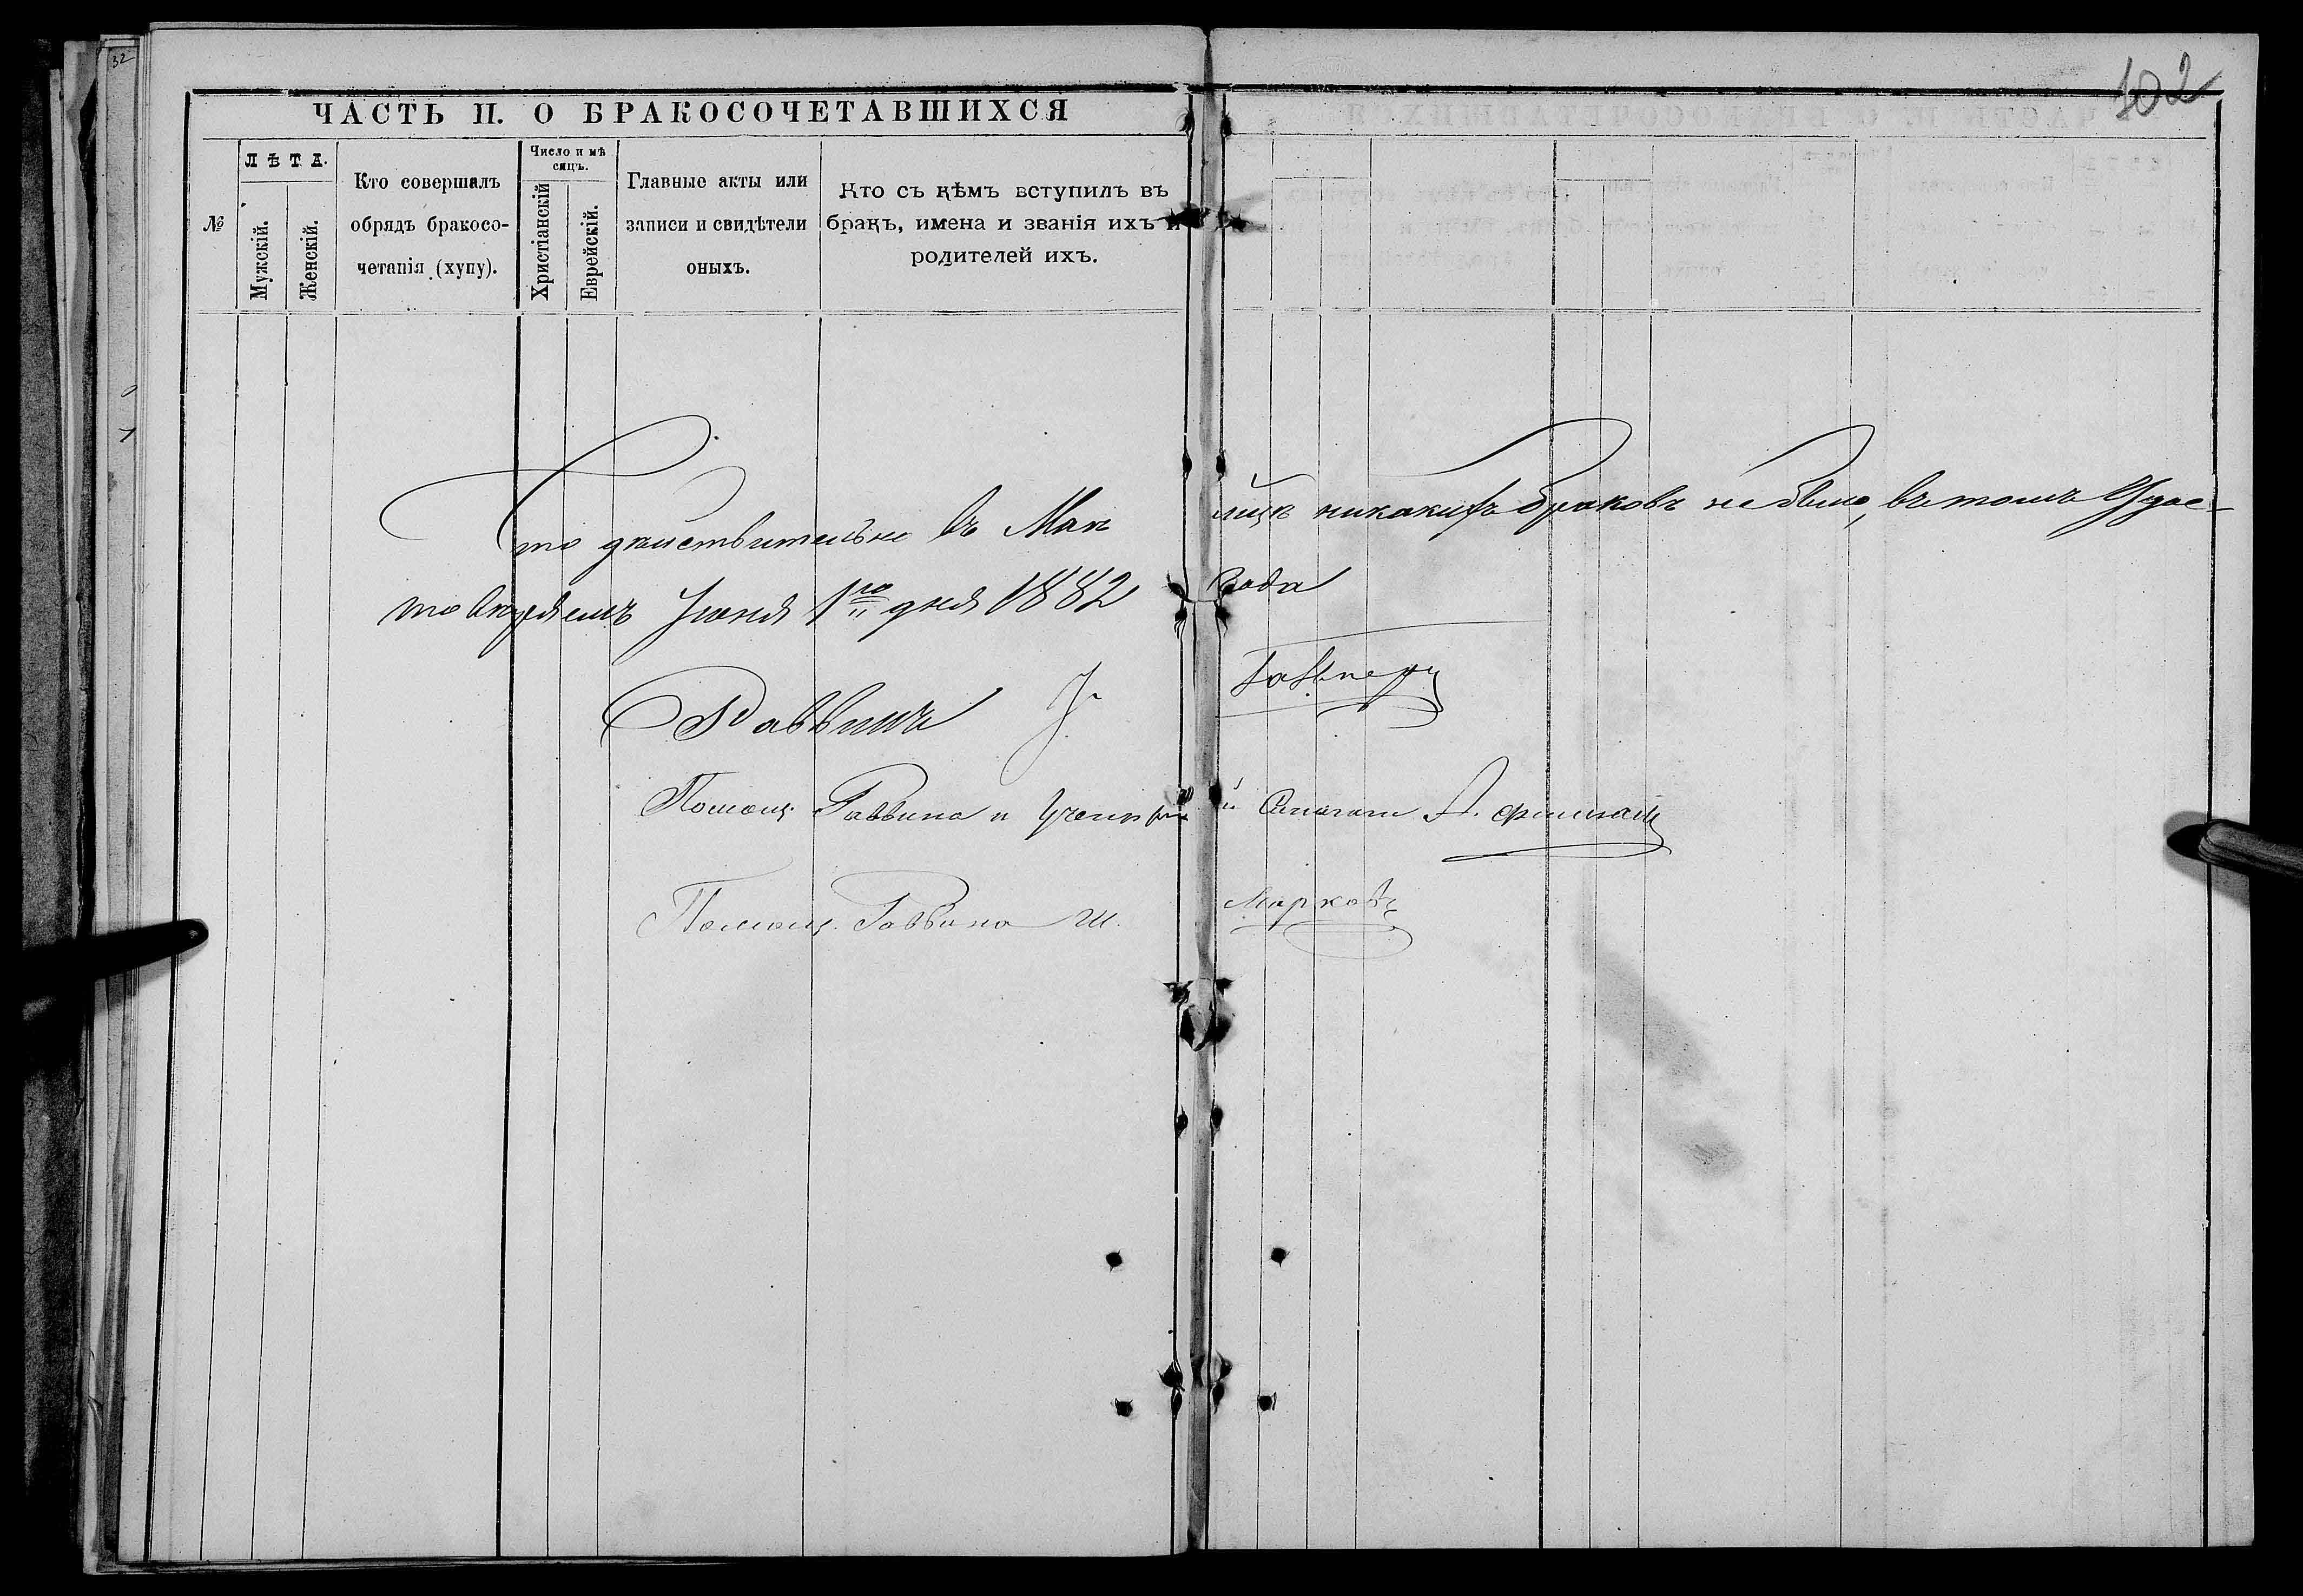 32
102
ЧАСТЬ II. О БРАКОСОЧЕТАВШИХСЯ
№
ЛѢТА.
Мужскій.
Женскій.
Кто совершалъ
обрядъ бракосо-
четанія (хупу).
Число и мѣ
сяцъ.
Христіанскій
Еврейскій.
Главные акты или
записи и свидѣтели
оныхъ.
Кто съ кѣмъ вступилъ въ
бракъ, имена и званія ихъ и
родителей ихъ.
Что дѣйствительно въ Маѣ мцѣ никакихъ браковъ не было, въ томъ Удос-
товѣряемъ Іюня 1го дня 1882 Года
Раввинъ
Помощ. Раввина и Учены й
Помощ. Раввина Ш. Марковъ